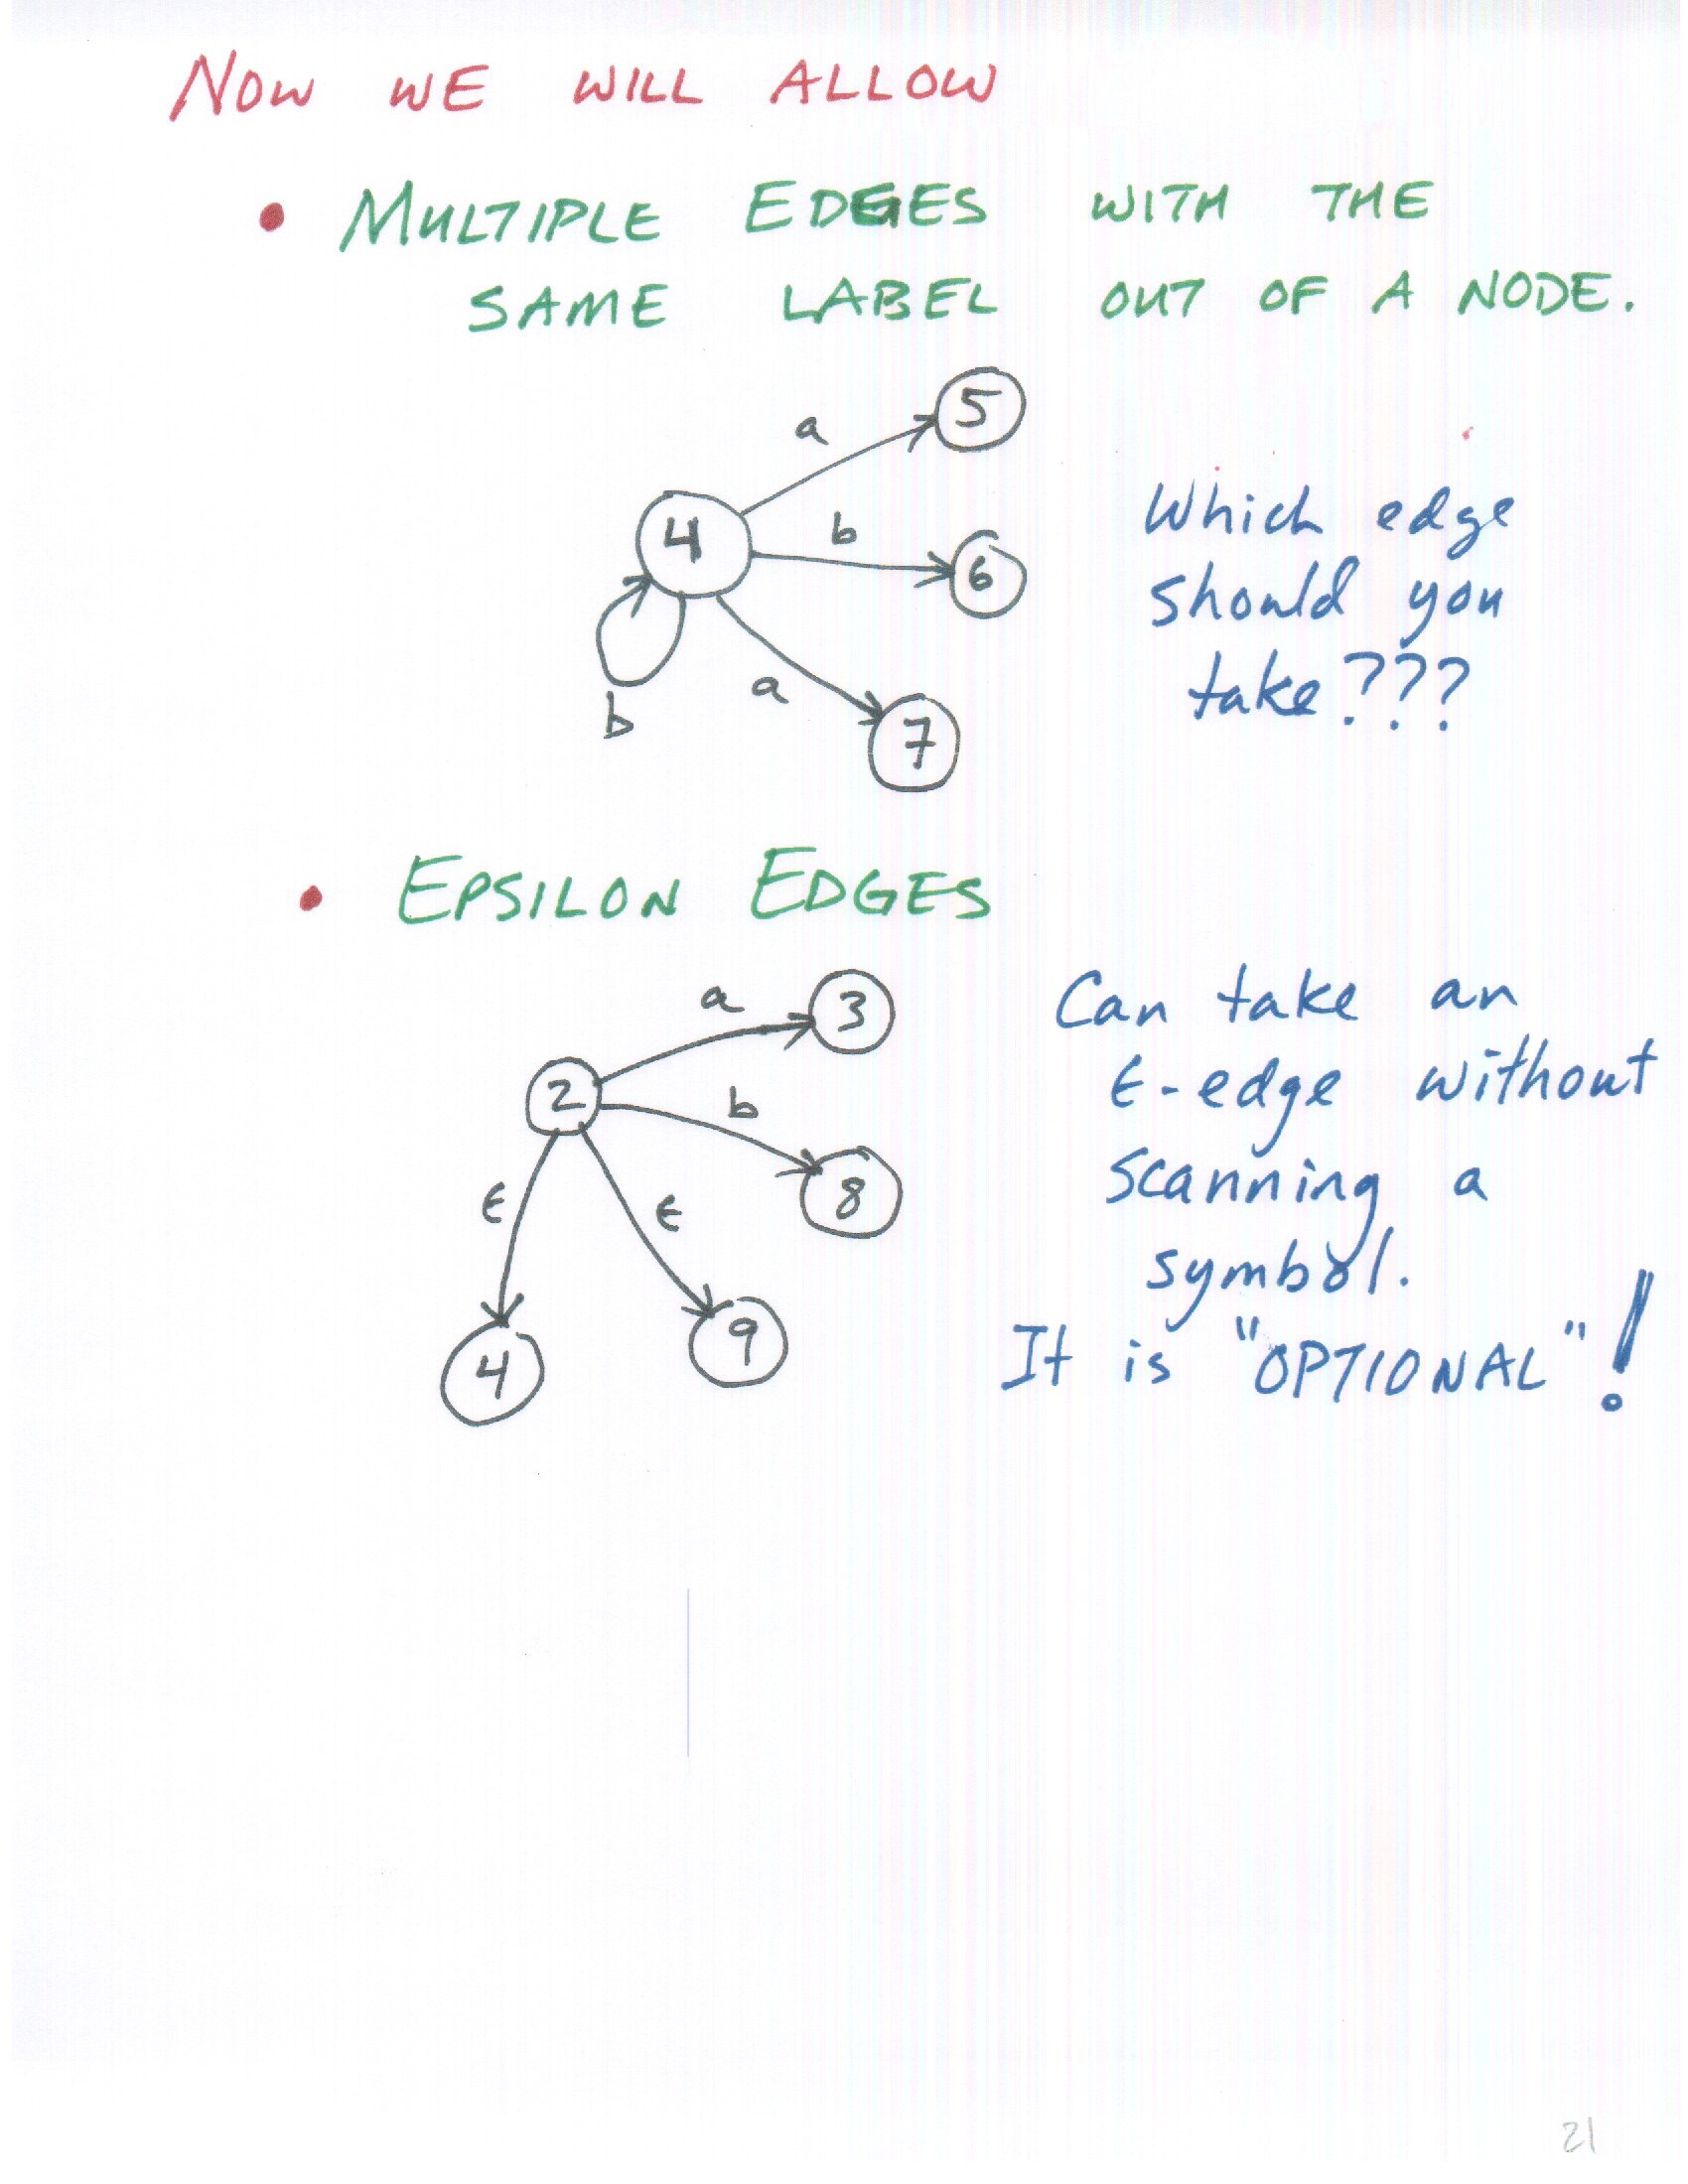 NOW WE WILL ALLOW
• MULTIPLE EDGES WITH THE
SAME LABEL OUT OF A NODE.
5
a
4
b
6
Which edge
should you
take???
a
b
7
• EPSILON EDGES
a
3
2
b
8
ϵ
ϵ
4
9
Can take an
ϵ-edge without
scanning a
symbol.
It is "OPTIONAL"!
21